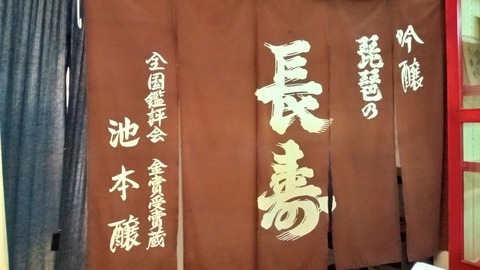 吟醸
琵琶の
長寿
全国鑑評会 金賞受賞蔵
池本醸